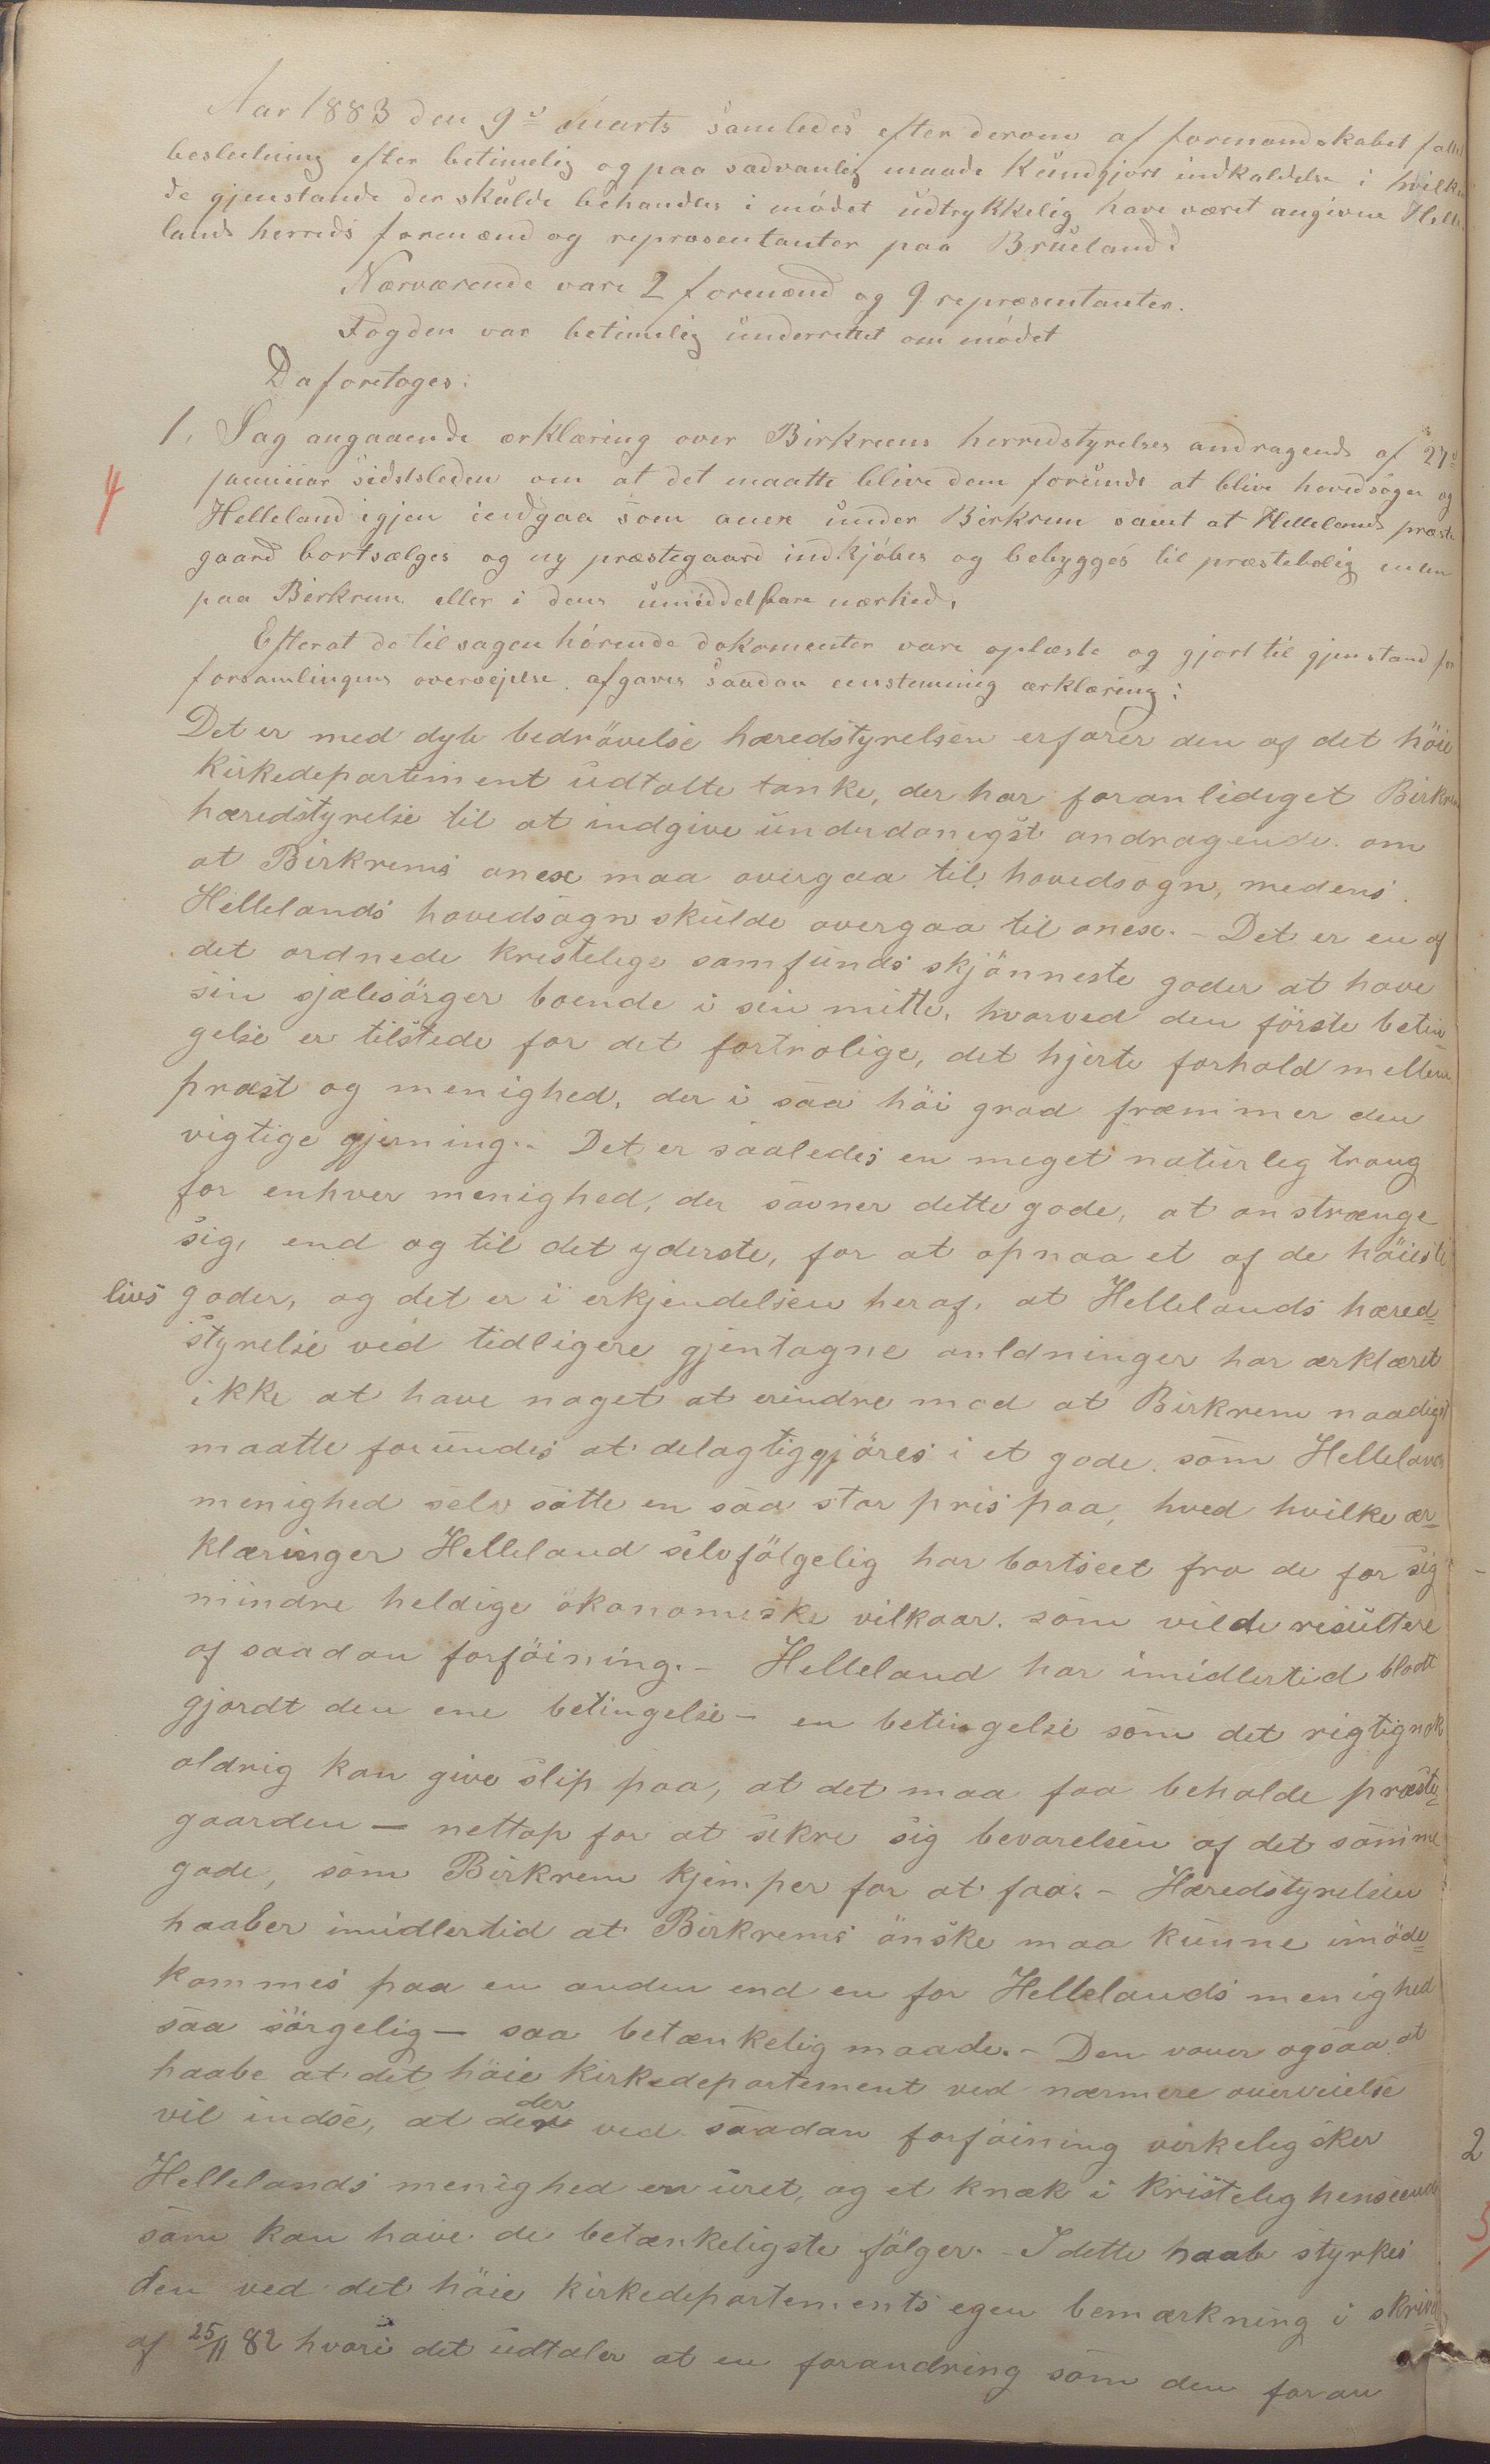 Aar 1883 den 9de marts samledes efter derom af formandskabet fattet
beslutning efter betimelig og paa sadvanlig maade kundgjort indkaldelse i hvilken
de gjenstande der skulde behandles i mödet udtrykkelig have været angivne Helle
lands herreds formænd og repræsentanter paa Brueland.
Nærværende vare 2 formænd og 9 repræsentanter.
Fogden var betimelig underrettet om mödet
Da foretoges:
1. Sag angaaende ærklæring over Birkrems herredstyrelses andragende af 27de
4
januar sidstsleden om at det maatte blive dem forunde at blive hovedsogn og
Helleland igjen indgaa som anex under Birkrem samt at Hellelands præste
gaard bortsælges og ny præstegaard indkjöbes og bebygges til præstebolig
paa Birkrem eller i dens umiddelbare nærhed.
Efterat de til sagen hörende dokomenter vare oplæste og gjort til gjenstand for
forsamlingens overvejelse afgaves saadan eenstemmig ærklæring:
Det er med dyb bedrövelse hæredstyrelsen erfarer den af det höie
kirkedepartement udtalte tanke, der har foranlediget Birkrem
hæredstyrelse til at indgive underdanigst andragende om
at Birkrems anex maa overgaa til hovedsogn, medens
Hellelands hovedsogn skulde overgaa til anex. - Det er en af
det ordnede kristelige samfunds skjönneste goder at have
sin sjælesörger boende i sin mitte, hvorved den förste betin-
gelse er tilstede for det fortrolige, det hjerte forhold mellem
præst og menighed, der i saa höi grad fræmmer den
vigtige gjerning. - Det er saaledes en meget naturleg trang
for enhver menighed, der savner dette gode, at anstrænge
sig, end og til det yderste, for at opnaa et af de höieste
livs goder, og det er i erkjendelsen heraf, at Hellelands hæred-
styrelse ved tidligere gjentagne anldninger har ærklæret
ikke at have noget at erindre mod at Birkrem naadigst
maatte forundes at delagtiggjöres i et gode som Hellelands
menighed selv sätte en saa stor pris paa, hved hvilke ær-
klæringer Helleland selvfölgelig har bortseet fra de for sig
mindre heldige ökonomiske vilkaar som vilde resultere
af saadan forföining. - Helleland har imidlertid blodt
gjordt den ene betingelse - en betingelse som det rigtignok
aldrig kan give slip paa, at det maa faa beholde præste-
gaarden - nettop for at sikre sig bevarelsen af det samme
gode, som Birkrem kjemper for at faa. - Hæredstyrelsen
haaber imidlertid at Birkrems önske maa kunne imöde-
kommes paa en anden end en for Hellelands menighed
saa sörgelig - saa betænkelig maade. - Den vover ogsaa at
haabe at det höie kirkedepartement ved nærmere overveielse
vil indse, at der ved saadan forföining virkelig sker
Hellelands menighed en uret, og et knæk i kristelig henseende
som kan have de betænkeligste fölger. - I dette haab styrkes
den ved det höie kirkedepartements egen bemærkning i skriv
af 25/11 82 hvori det udtaler at en forandring som den foran